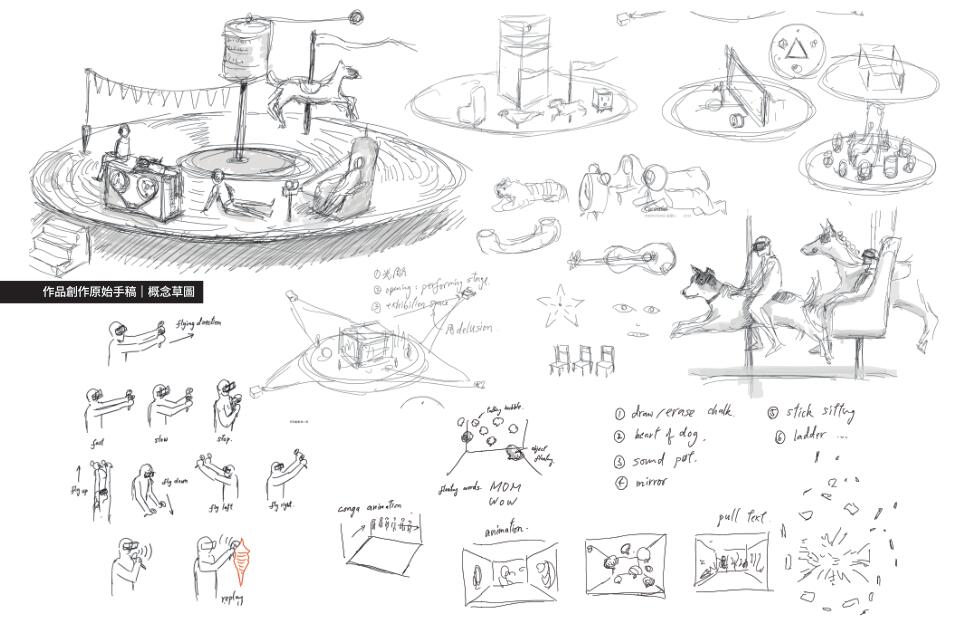 作品創作原始手稿｜概念草圖
② opening : performing stage.
③ exhibition space
delusion.
flying direction
fast
slow
stop.
fly up
fly down
fly left
fly right.
replay
conga animation
talking bubble.
object floating.
floating words. MOM
WOW
animation.
pull text.
① draw/erase chalk.
② heart of dog.
③ sound pot.
④ mirror
⑤ stick sitting
⑥ ladder ...